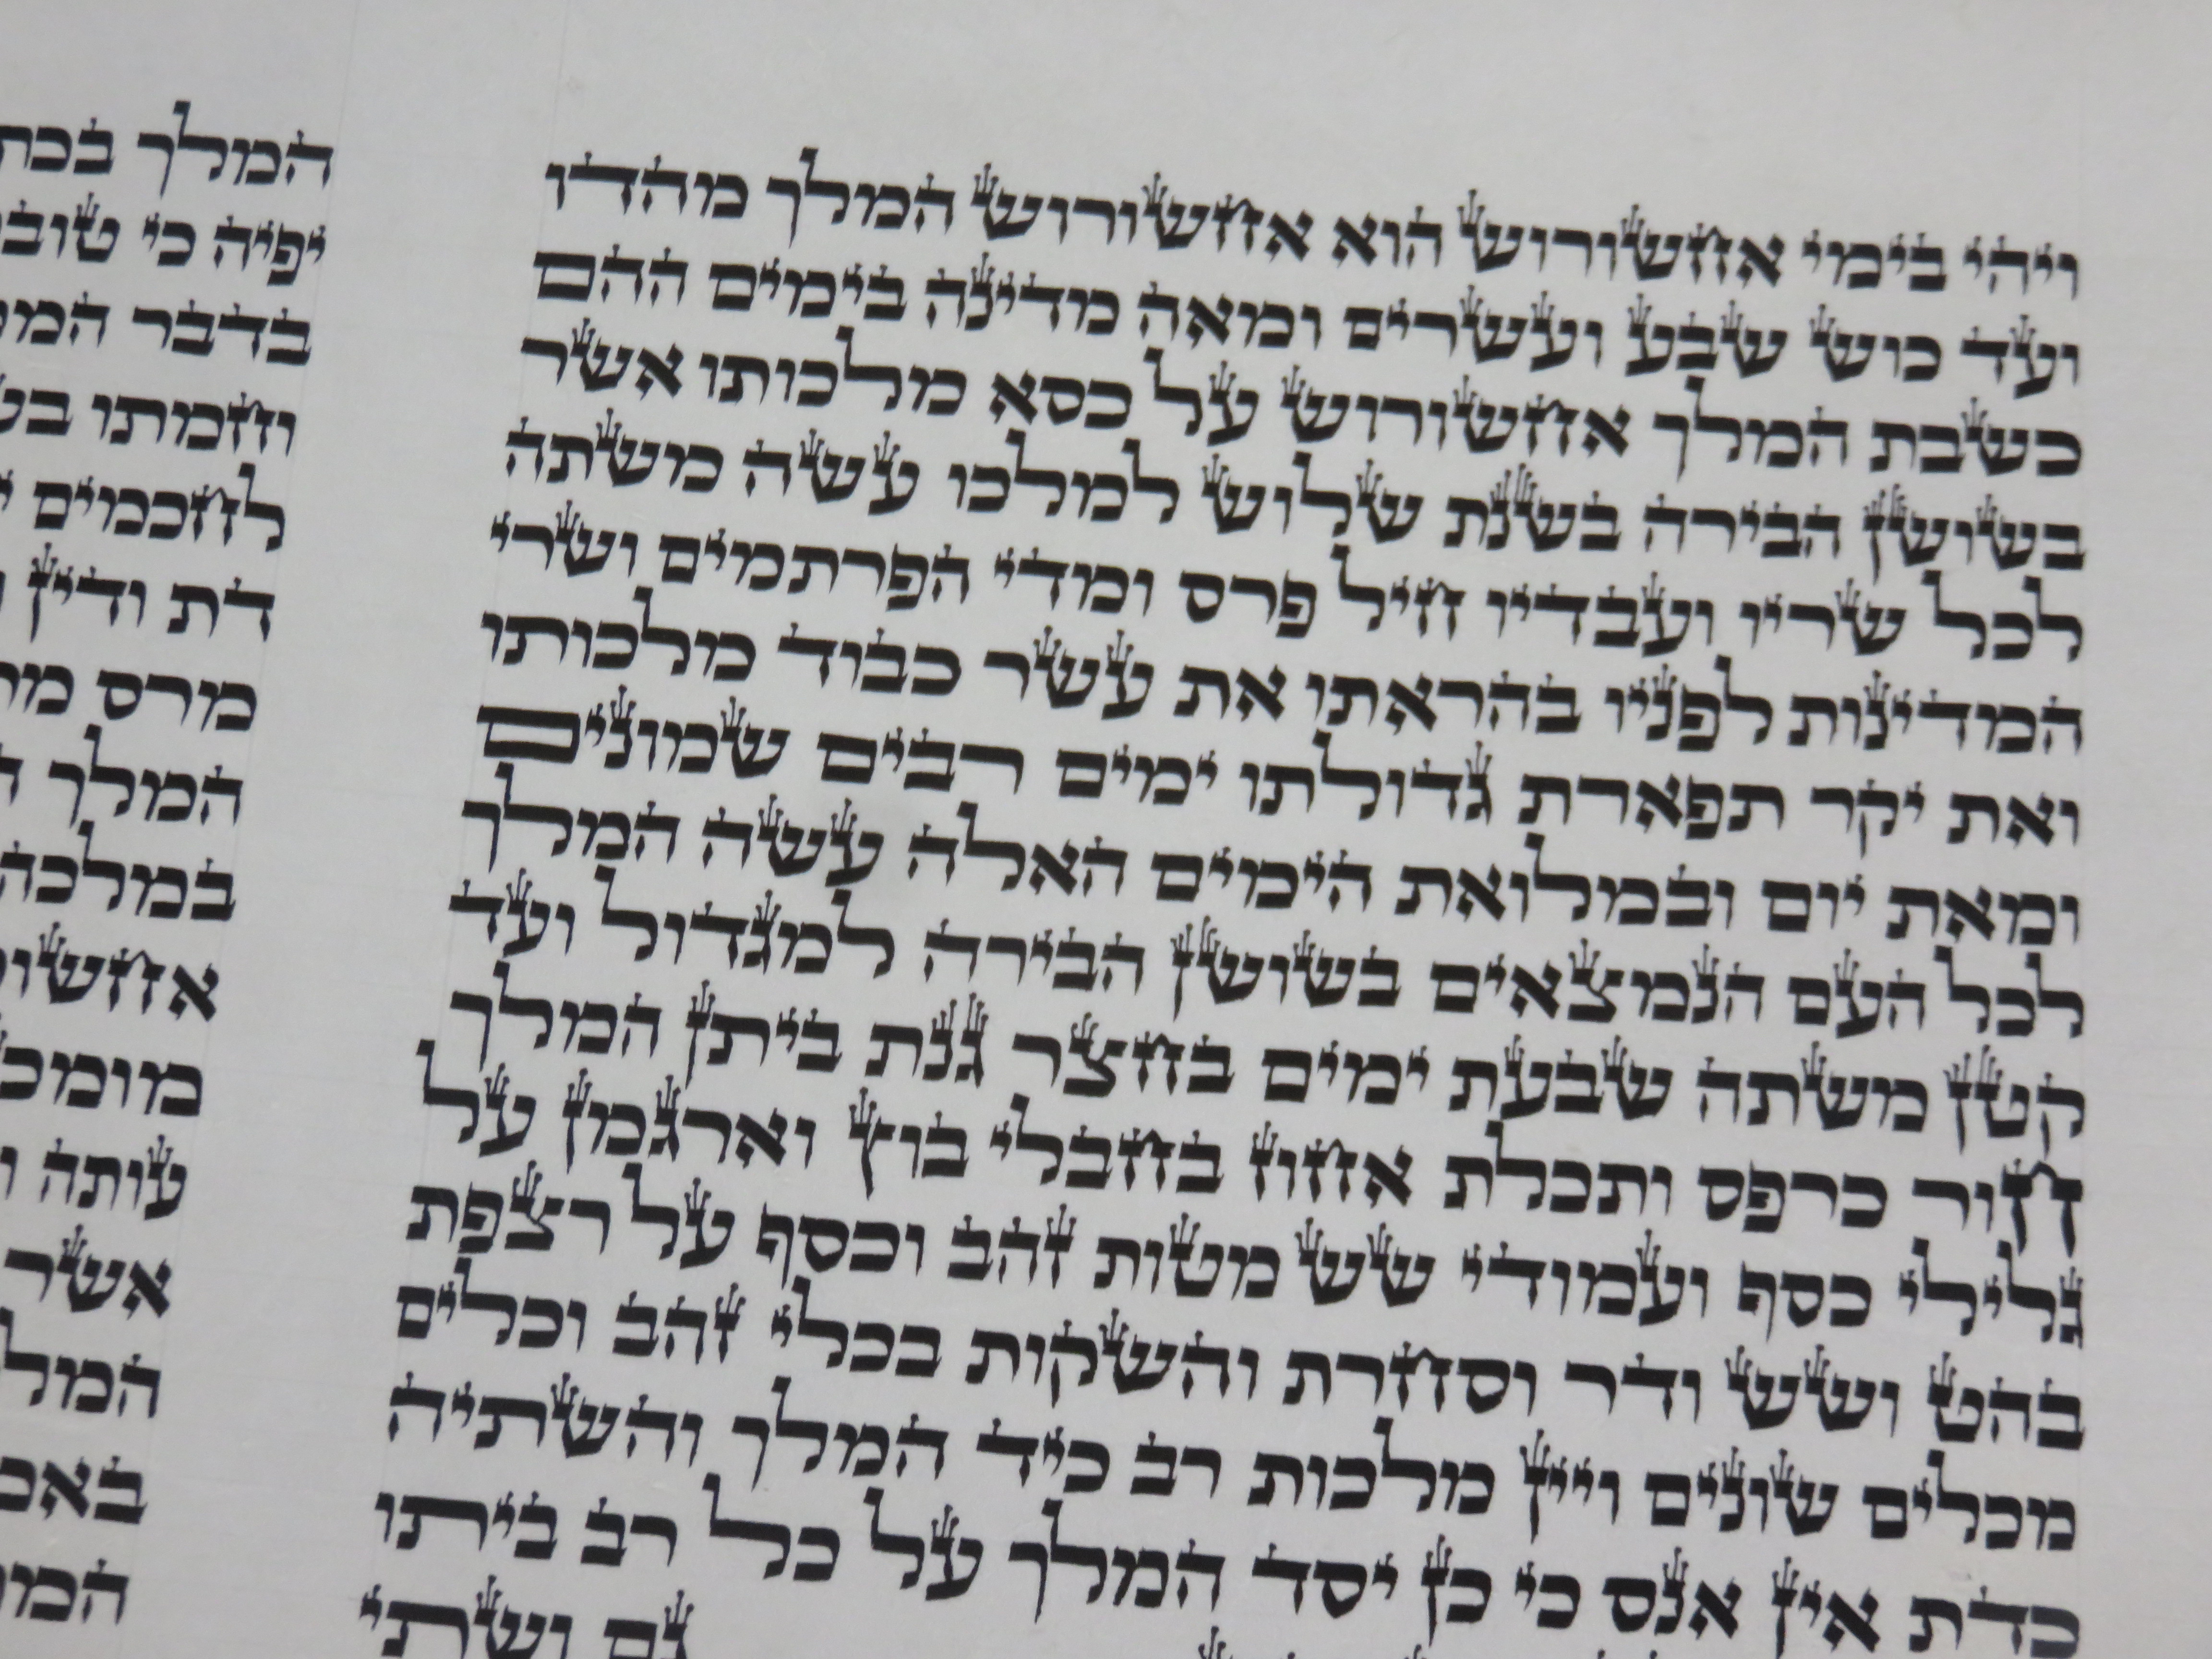 ויהי בימי אחשורוש הוא אחשורוש המלך מהדו
ועד כוש שבע ועשרים ומאה מדינה בימים ההם
כשבת המלך אחשורוש על כסא מלכותו אשר
בשושן הבירה בשנת שלוש למלכו עשה משתה
לכל שריו ועבדיו חיל פרס ומדי הפרתמים ושרי
המדינות לפניו בהראתו את עשר כבוד מלכותו
ואת יקר תפארת גדולתו ימים רבים שמונים
ומאת יום ובמלואת הימים האלה עשה המלך
לכל העם הנמצאים בשושן הבירה למגדול ועד
קטן משתה שבעת ימים בחצר גנת ביתן המלך
חור כרפס ותכלת אחוז בחבלי בוץ וארגמן על
גלילי כסף ועמודי שש מטות זהב וכסף על רצפת
בהט ושש ודר וסחרת והשקות בכלי זהב וכלים
מכלים שונים ויין מלכות רב כיד המלך והשתיה
כדת אין אנס כי כן יסד המלך על כל רב ביתו
גם ושתי
המלך בכת
יפיה כי טוב
בדבר המ
וחמתו בע
לחכמים י
דת ודין
מרס מר
המלך ה
במלכה
אחשו
מומכ
עותה ו
אשר
המל
באמ
המ